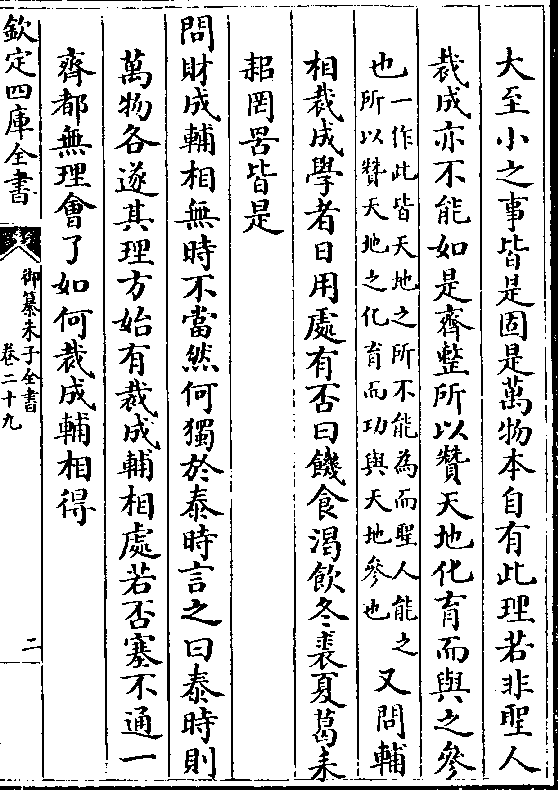 大至小之事皆是固是萬物本自有此理若非聖人
裁成亦不能如是齊整所以贊天地化育而與之參
也一作此皆天地之所不能為而聖人能之所以贊天地之化育而功與天地參也又問輔
相裁成學者日用處有否曰饑食渴飲冬裘夏葛耒
耜罔罟皆是
問財成輔相無時不當然何獨於泰時言之曰泰時則
萬物各遂其理方始有裁成輔相處若否塞不通一
齊都無理會了如何裁成輔相得
欽定四庫全書
御纂朱子全書
卷二十九
二